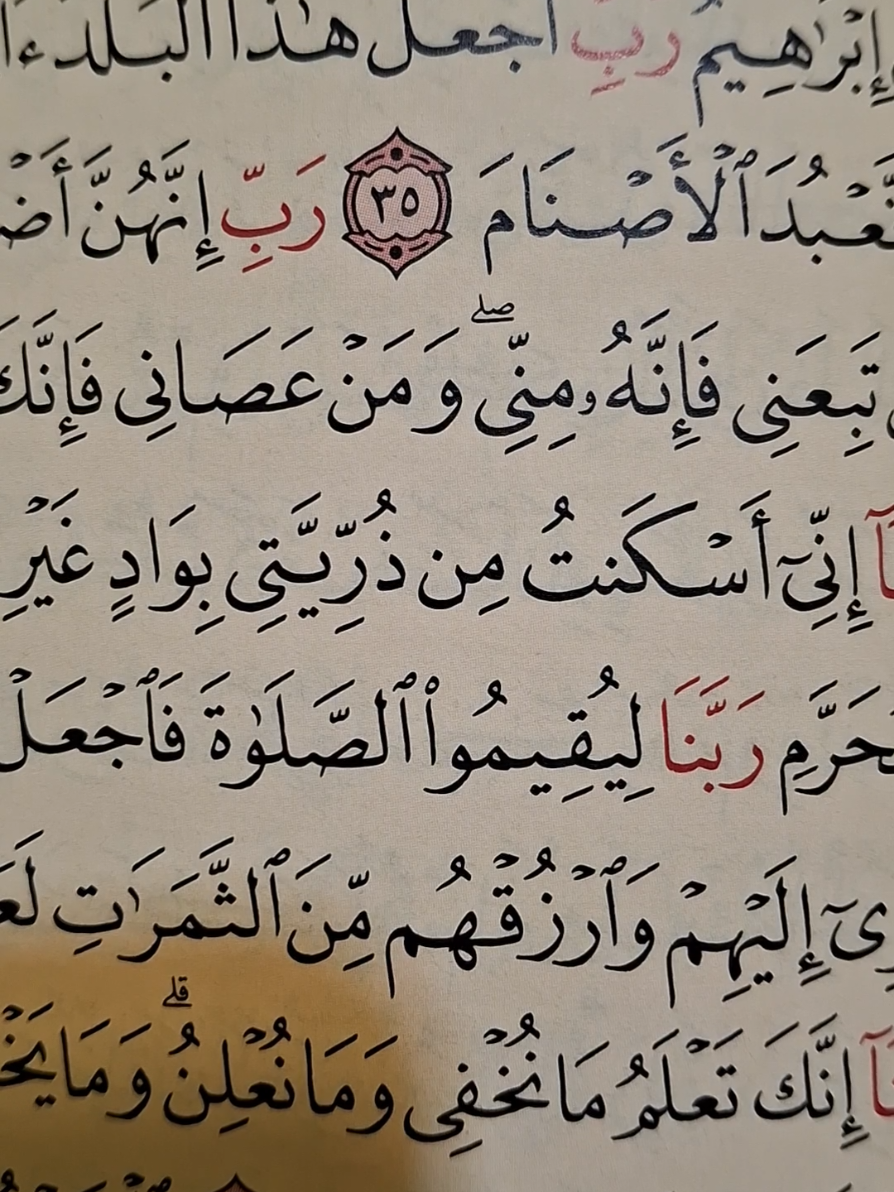 إِبْرَٰهِيمُ رَبِّ ٱجْعَلْ هَٰذَا ٱلْبَلَدَ
نَّعْبُدَ ٱلْأَصْنَامَ ٣٥ رَبِّ إِنَّهُنَّ أَضْ
تَبِعَنِى فَإِنَّهُۥ مِنِّىۖ وَمَنْ عَصَانِى فَإِنَّكَ
إِنِّىٓ أَسْكَنتُ مِن ذُرِّيَّتِى بِوَادٍ غَيْرِ
حَرَّمِ رَبَّنَا لِيُقِيمُوا۟ ٱلصَّلَوٰةَ فَٱجْعَلْ
ىٓ إِلَيْهِمْ وَٱرْزُقْهُم مِّنَ ٱلثَّمَرَٰتِ لَعَ
إِنَّكَ تَعْلَمُ مَا نُخْفِى وَمَا نُعْلِنُۗ وَمَا يَخْ